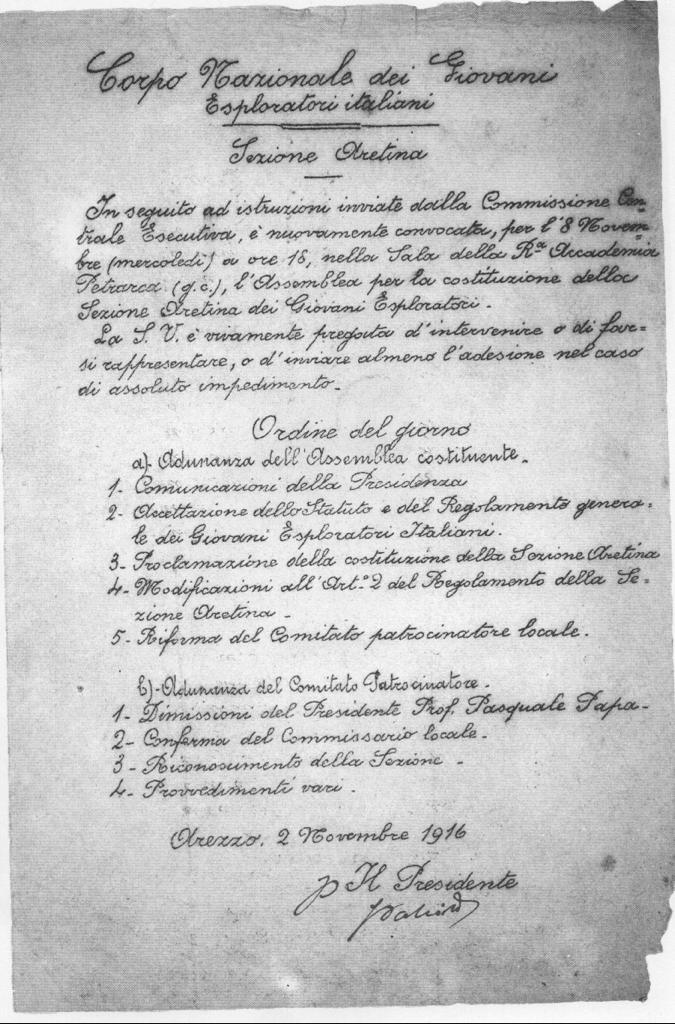 Corpo Nazionale dei Giovani
Esploratori italiani
Sezione Aretina
In seguito ad istruzioni inviate dalla Commissione Cen-
trale Esecutiva, è nuovamente convocata, per l'8 Novem-
bre (mercoledì) a ore 18, nella Sala della Rª Accademia
Petrarca (g.c.), l'Assemblea per la costituzione della
Sezione Aretina dei Giovani Esploratori.
La S. V. è vivamente pregata d'intervenire o di far-
si rappresentare, o d'inviare almeno l'adesione nel caso
di assoluto impedimento.
Ordine del giorno
a)- Adunanza dell'Assemblea costituente.
1- Comunicazioni della Presidenza
2- Accettazione dello Statuto e del Regolamento genera-
le dei Giovani Esploratori Italiani.
3- Proclamazione della costituzione della Sezione Aretina
4- Modificazioni all'Art.º 2 del Regolamento della Se-
zione Aretina -
5- Riforma del Comitato patrocinatore locale.
b)- Adunanza del Comitato Patrocinatore.
1- Dimissioni del Presidente Prof. Pasquale Papa-
2- Conferma del Commissario locale.
3- Riconoscimento della Sezione -
4- Provvedimenti vari.
Arezzo, 2 Novembre 1916
p Il Presidente